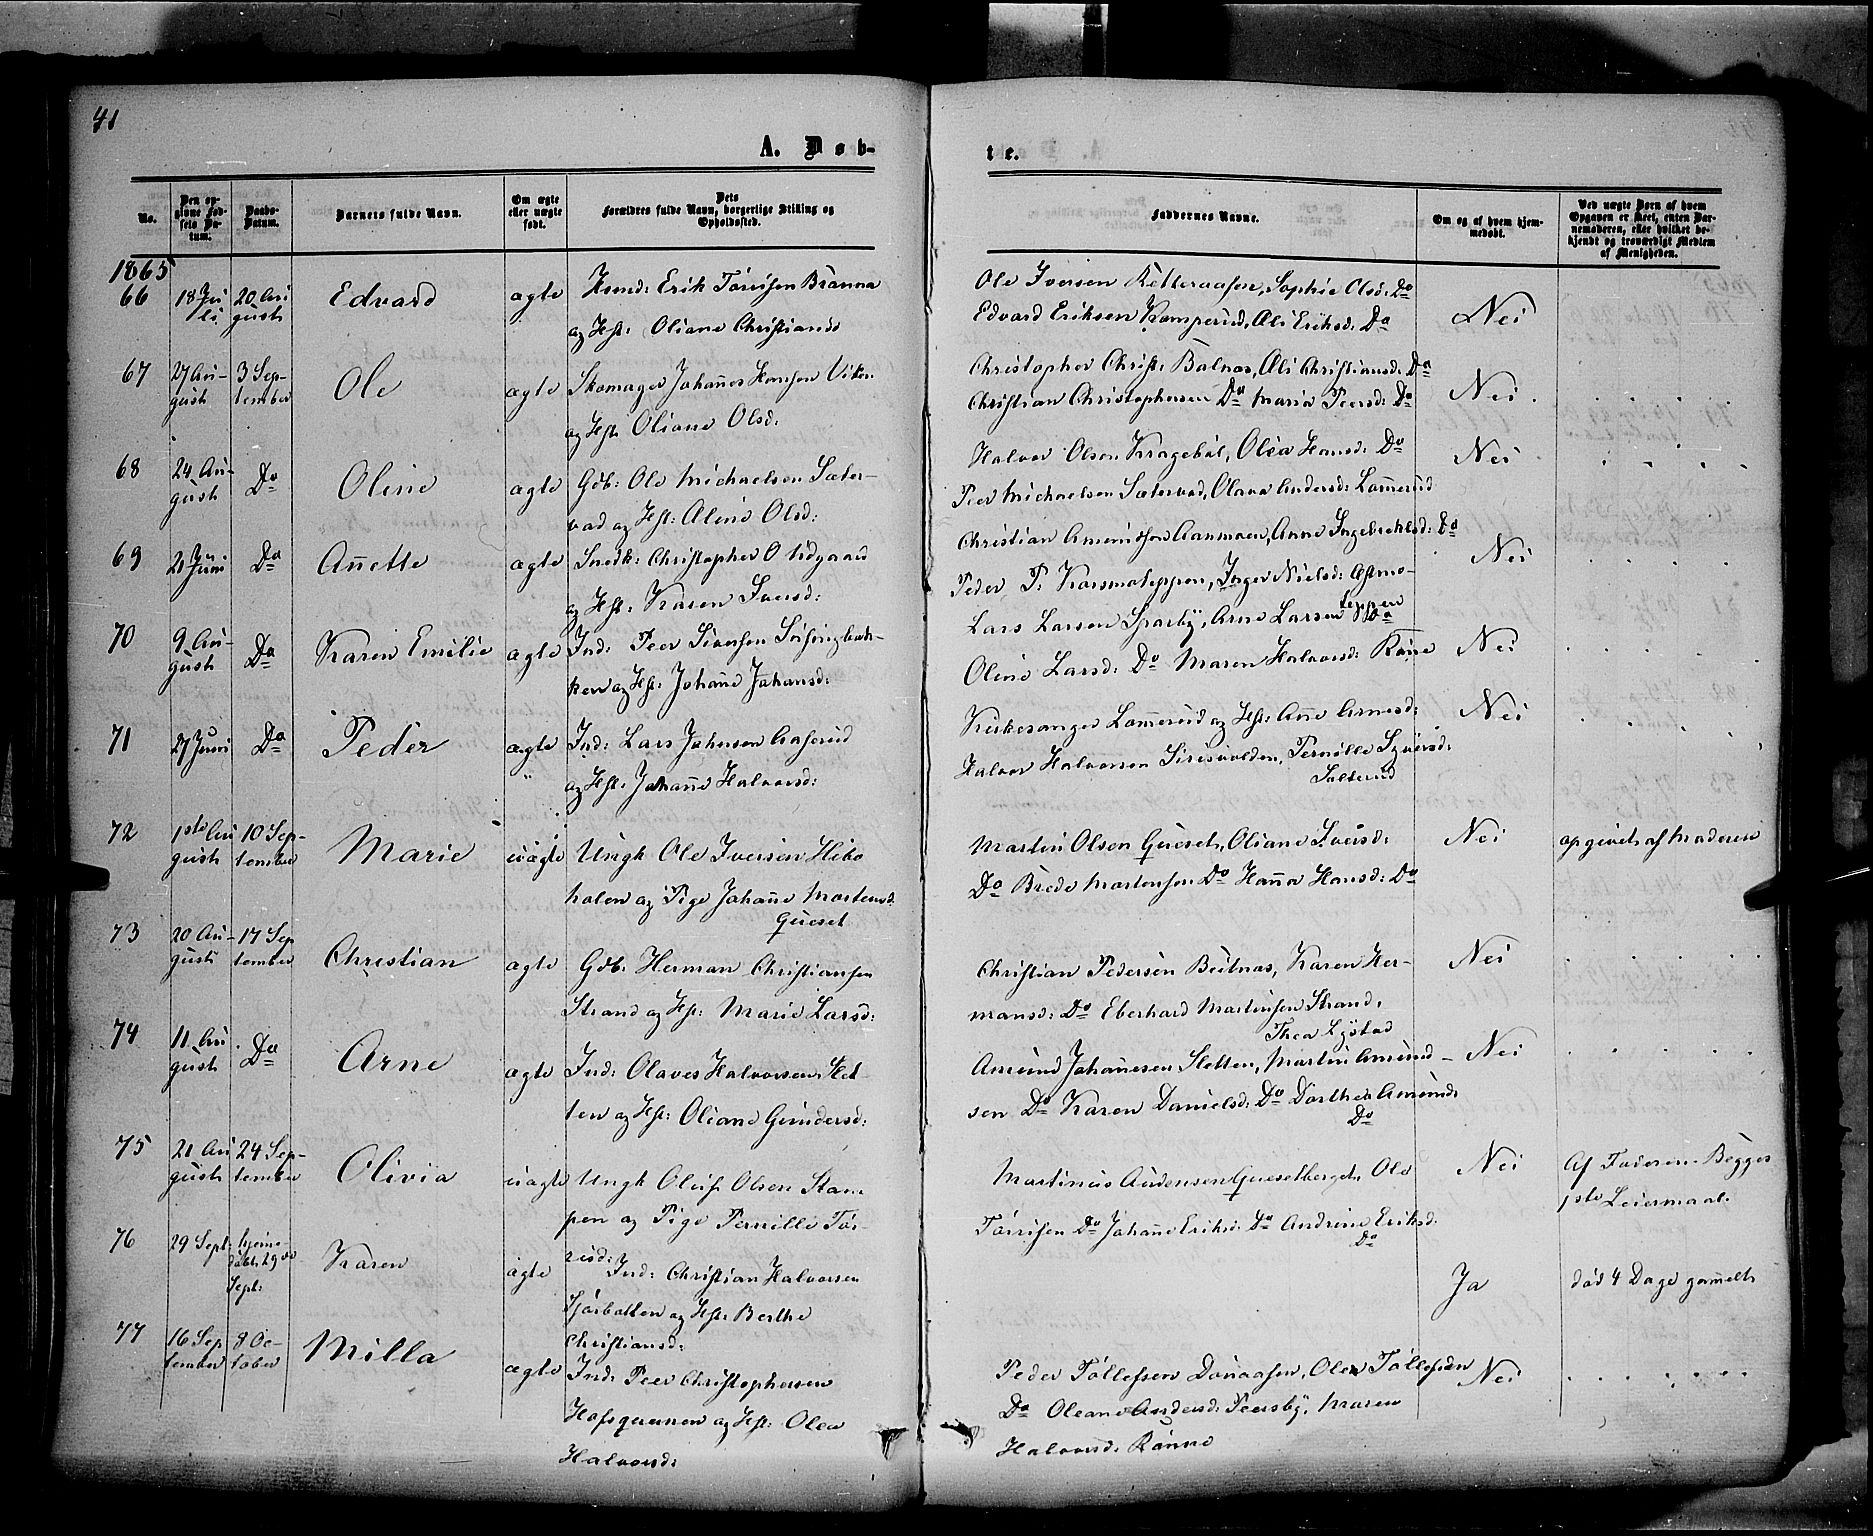 41
A. Døb-
te.
No.
Den op-
givne Fød-
sels Da-
tum.
Daabs-
Datum.
Barnets fulde Navn.
Om ægte
eller uægte
født.
Dets
Forældres fulde Navn, borgerlige Stilling og
Opholdssted.
Faddernes Navne.
Om og af hvem hjem-
medøbt.
Ved uægte Børn af hvem
Opgaven er skeet, enten Bar-
nemoderen, eller hvilket be-
kjendt og troværdigt Medlem
af Menigheden.
1865
66
18 Ju
li
20 Au
gust
Edvard
ægte
Huusm: Erik Torrisen Brænna
og Hst: Oliane Christiansd
Ole Iversen Ketteraasen, Sophie Olsd: Do
Edvard Eriksen Kamperud, Oli Eriksd: Do
Nei
67
27 Au-
gust
3 Sep-
tember
Ole
ægte
Skomager Johannes Hansen Viker
og Hst: Oliane Olsd:
Christopher Christ: Balnæs, Oli Christiansd: Do
Christian Christophersen Do Maria Peersd: Do
Nei
68
24 Au-
gust
Do
Oline
ægte
Gdb: Ole Michaelsen Sæter-
vad og Hst: Aline Olsd:
Halvor Olsen Kragebøl, Olea Hansd: Do
Peer Michaelsen Sætervad, Olava Andersd: Lommerud
Nei
69
21 Juni
Do
Annette
ægte
Snedk: Christopher O Udgaard
og Hst: Karen Iversd:
Christian Amundsen Aanmoen, Anne Ingebrethsd: Do
Peder P. Karsmoteppen, Inger Nielsd: Astmo-
teppen
Nei
70
9 Au-
gust
Do
Karen Emilie
ægte
Ind: Peer Siversen Sorsingbak-
ken og Hst: Johanne Johansd:
Lars Larsen Sparby, Arne Larsen Do
Oline Larsd: Do Maren Halvorsd: Rønne
Nei
71
27 Juni
Do
Peder
ægte
Ind: Lars Johnsen Aaserud
og Hst: Johanne Halvorsd:
Kirkesanger Lommerud og Hst: Anne Arnesd:
Halvor Halvorsen Siresvolden, Pernille Syversd:
Sæterud
Nei
72
1ste Au
gust
10 Sep-
tember
Marie
uægte
Ungk Ole Iversen Hebo
holen og Pige Johanne Mortensd:
Gueset
Martin Olsen Gueset, Oliane Iversd:
Do Brede Mortensen Do Hanna Hansd: Do
Nei
opgivet af Moderen
73
20 Au-
gust
17 Sep
tember
Christian
ægte
Gdb: Herman Christiansen
Strand og Hst: Marie Larsd:
Christian Pedersen Beitnæs, Karen Her-
mansd: Do Eberhard Martinsen Strand,
Thea Lystad
Nei
74
11 Au
gust
Do
Arne
ægte
Ind: Olaves Halvorsen Slet-
ten og Hst: Oliane Gundersd:
Amund Johannesen Sletten, Martin Amund-
sen Do Karen Danielsd: Do Dorthea Amunds
Do
Nei
75
21 Au
gust
24 Sep-
tember
Olivia
uægte
Ungk Oluf Olsen Stam
pen og Pige Pernille Tor-
risd:
Martinus Audensen Guesetberget, Ole
Torrisen Do Johanne Eriksd: Do Andrine Eriksd:
Do
Nei
Af Faderen. Begges
1ste Leiermaal.
76
29 Sept:
hjemme-
døbt 29de
Sept:
Karen
ægte
Ind: Christian Halvorsen
Tjørbotten og Hst: Berthe
Christiansd:
Ja
død 4 Dage gammelt
77
16 Sep
tember
8 Oc-
tober
Milla
ægte
Ind: Peer Christophersen
Hofsgrænnen og Hst: Olea
Halvorsd:
Peder Tollefsen Donaasen, Olea Tollefsen
Do Oleane Andersd: Peersby, Maren
Halvorsd: Rønne
Nei